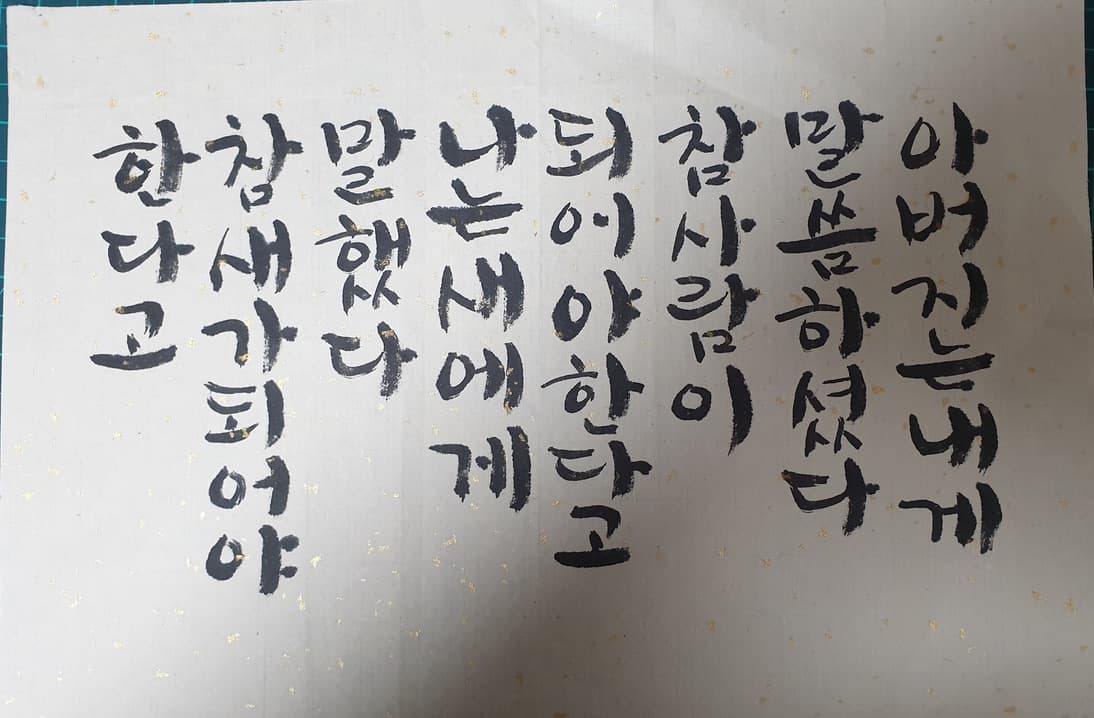 아버진는내게
말씀하셨다
참사람이
되어야한다고
나는새에게
말했다
참새가되어야
한다고